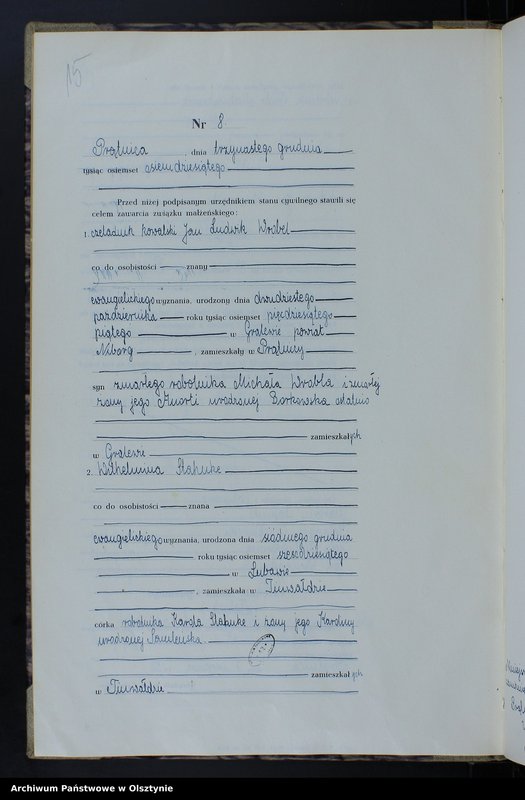 15
Nr 8.
Prątnica dnia trzynastego grudnia
tysiąc osiemset osiemdziesiątego
Przed niżej podpisanym urzędnikiem stanu cywilnego stawili się
celem zawarcia związku małżeńskiego:
1. czeladnik kowalski Jan Ludwik Wrobel
co do osobistości znany
ewangelickiego wyznania, urodzony dnia dwudziestego
października roku tysiąc osiemset pięćdziesiątego
piątego w powiat
Nibory, zamieszkały w Prątnicy
syn zmarłego robotnika Michała Wrobla i zmarłej
żony jego urodzonej Borkowska ostatnio
zamieszkałych
w
2. Wilhelmina
co do osobistości znana
ewangelickiego wyznania, urodzona dnia siódmego grudnia
roku tysiąc osiemset sześćdziesiątego
w Lubawie
, zamieszkała w Tuszwałdzie
córka robotnika Karola i żony jego Karoliny
urodzonej
zamieszkałych
w Tuszwałdzie
Archiwum Państwowe w Olsztynie